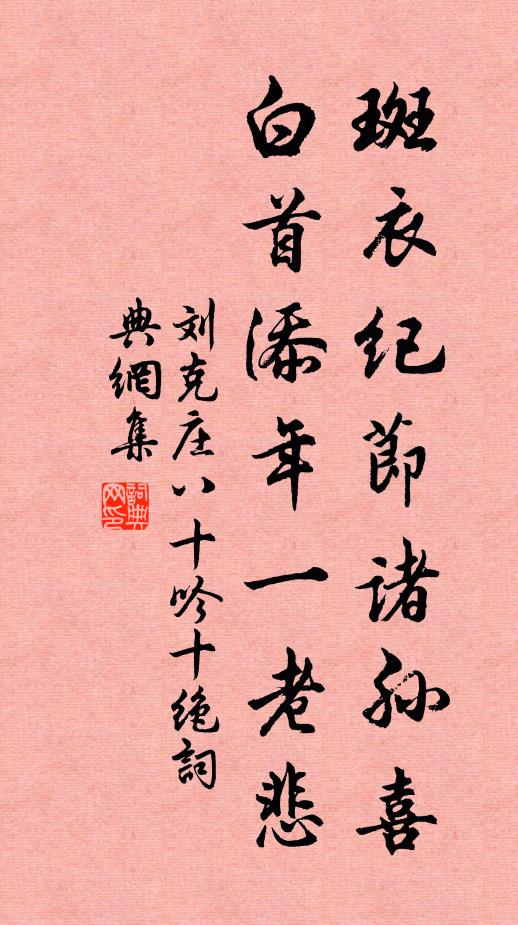 斑衣纪節诸孙喜
白首添年一老悲
刘克庄八十吟十绝詞
典網集
詞典网印